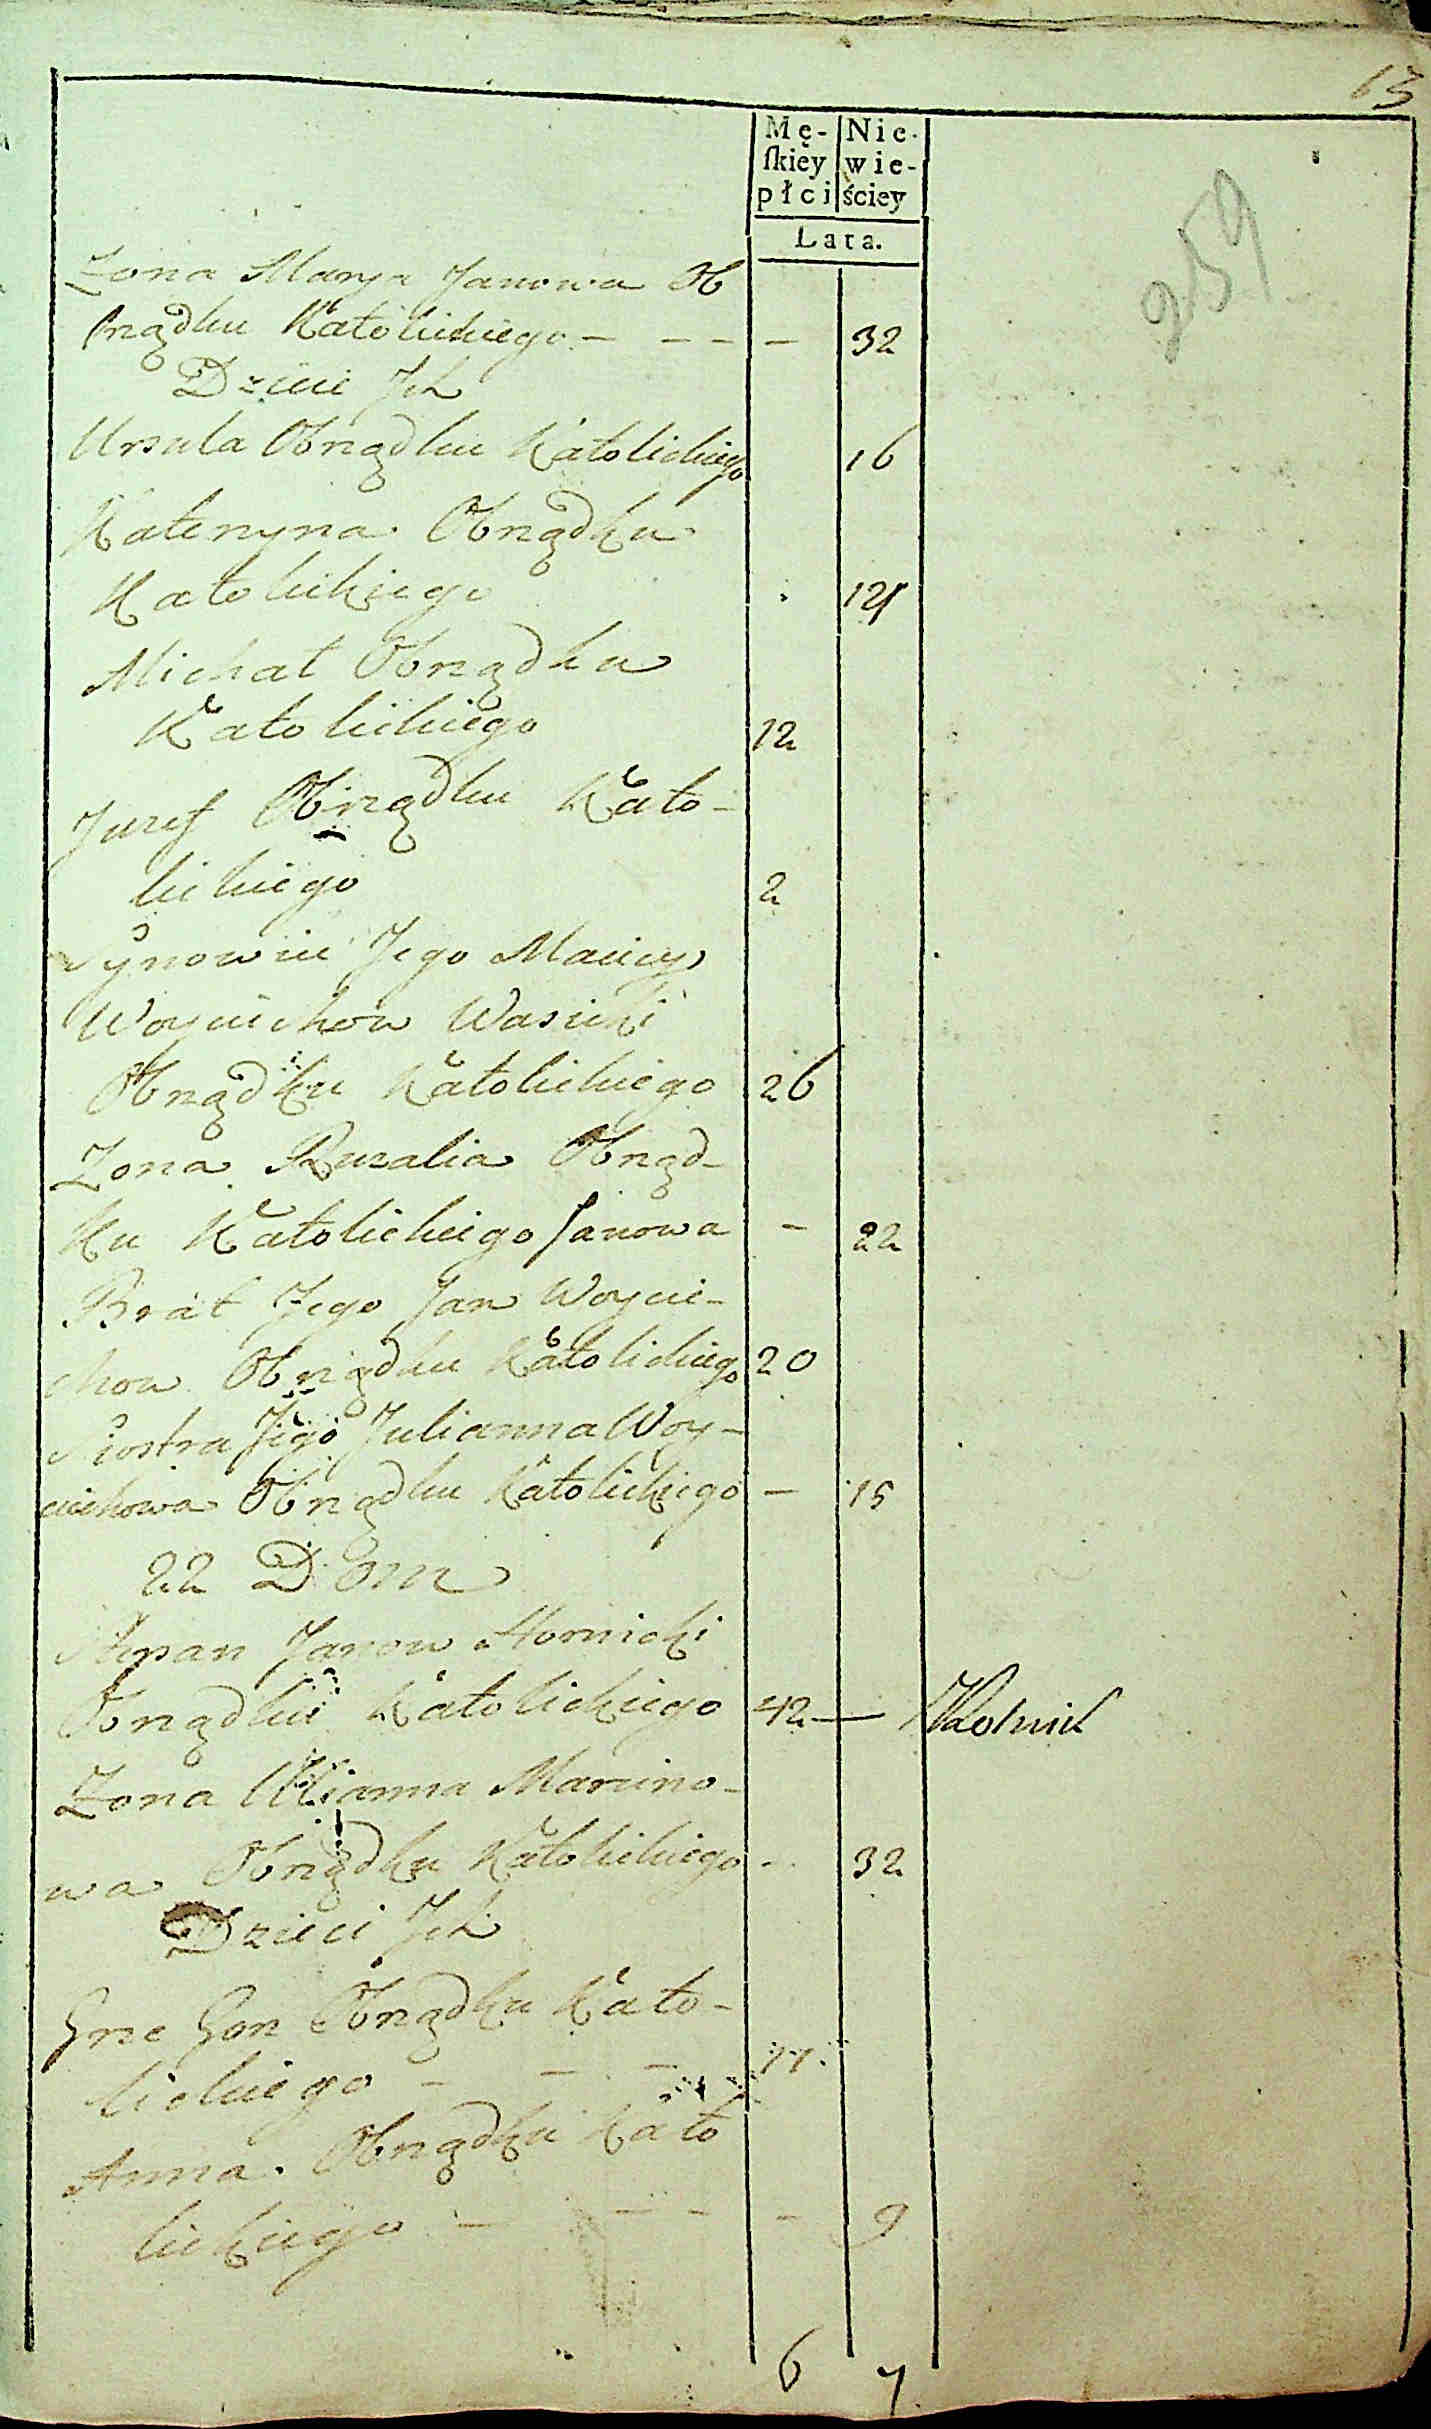 63
Mę- Nie-
ſkiey wie-
płci ściey
Lata.
259
Zona Marya Janowa Ob
rządku Katolickiego - - - - 32
Dzieci Jch
Ursula Obrządku Katolickiego 16
Kateryna Obrządku
Katolickiego
Michał Obrządku
Katolickiego 12
Juzef Obrządku Kato-
lickiego 2
Synowiec Jego Maciey
Woyciechow Wasicki
Obrządku Katolickiego 26
Zona Ruzalia Obrząd-
ku Katolickiego Janowa - 22
Brat Jego Jan Woycie-
chow Obrządku Katolickiego 20
Siostra Jego Julianna Woy-
ciechowa Obrządku Katolickiego - 15
22 Dom
Stepan Janow
Obrządku Katolickiego 42 —
Zona Marcino-
wa Obrządku Katolickiego - 32
Dzieci Jch
Hre Hor Obrządku Kato-
lickiego - - - 11
Anna Obrządku Kato
lickiego - - - - 9
6 7